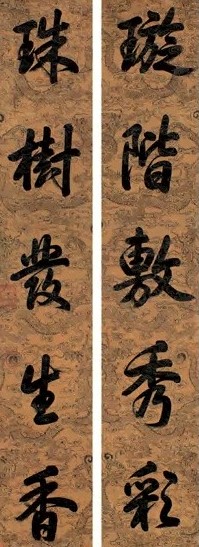 璇階敷秀彩
珠樹發生香